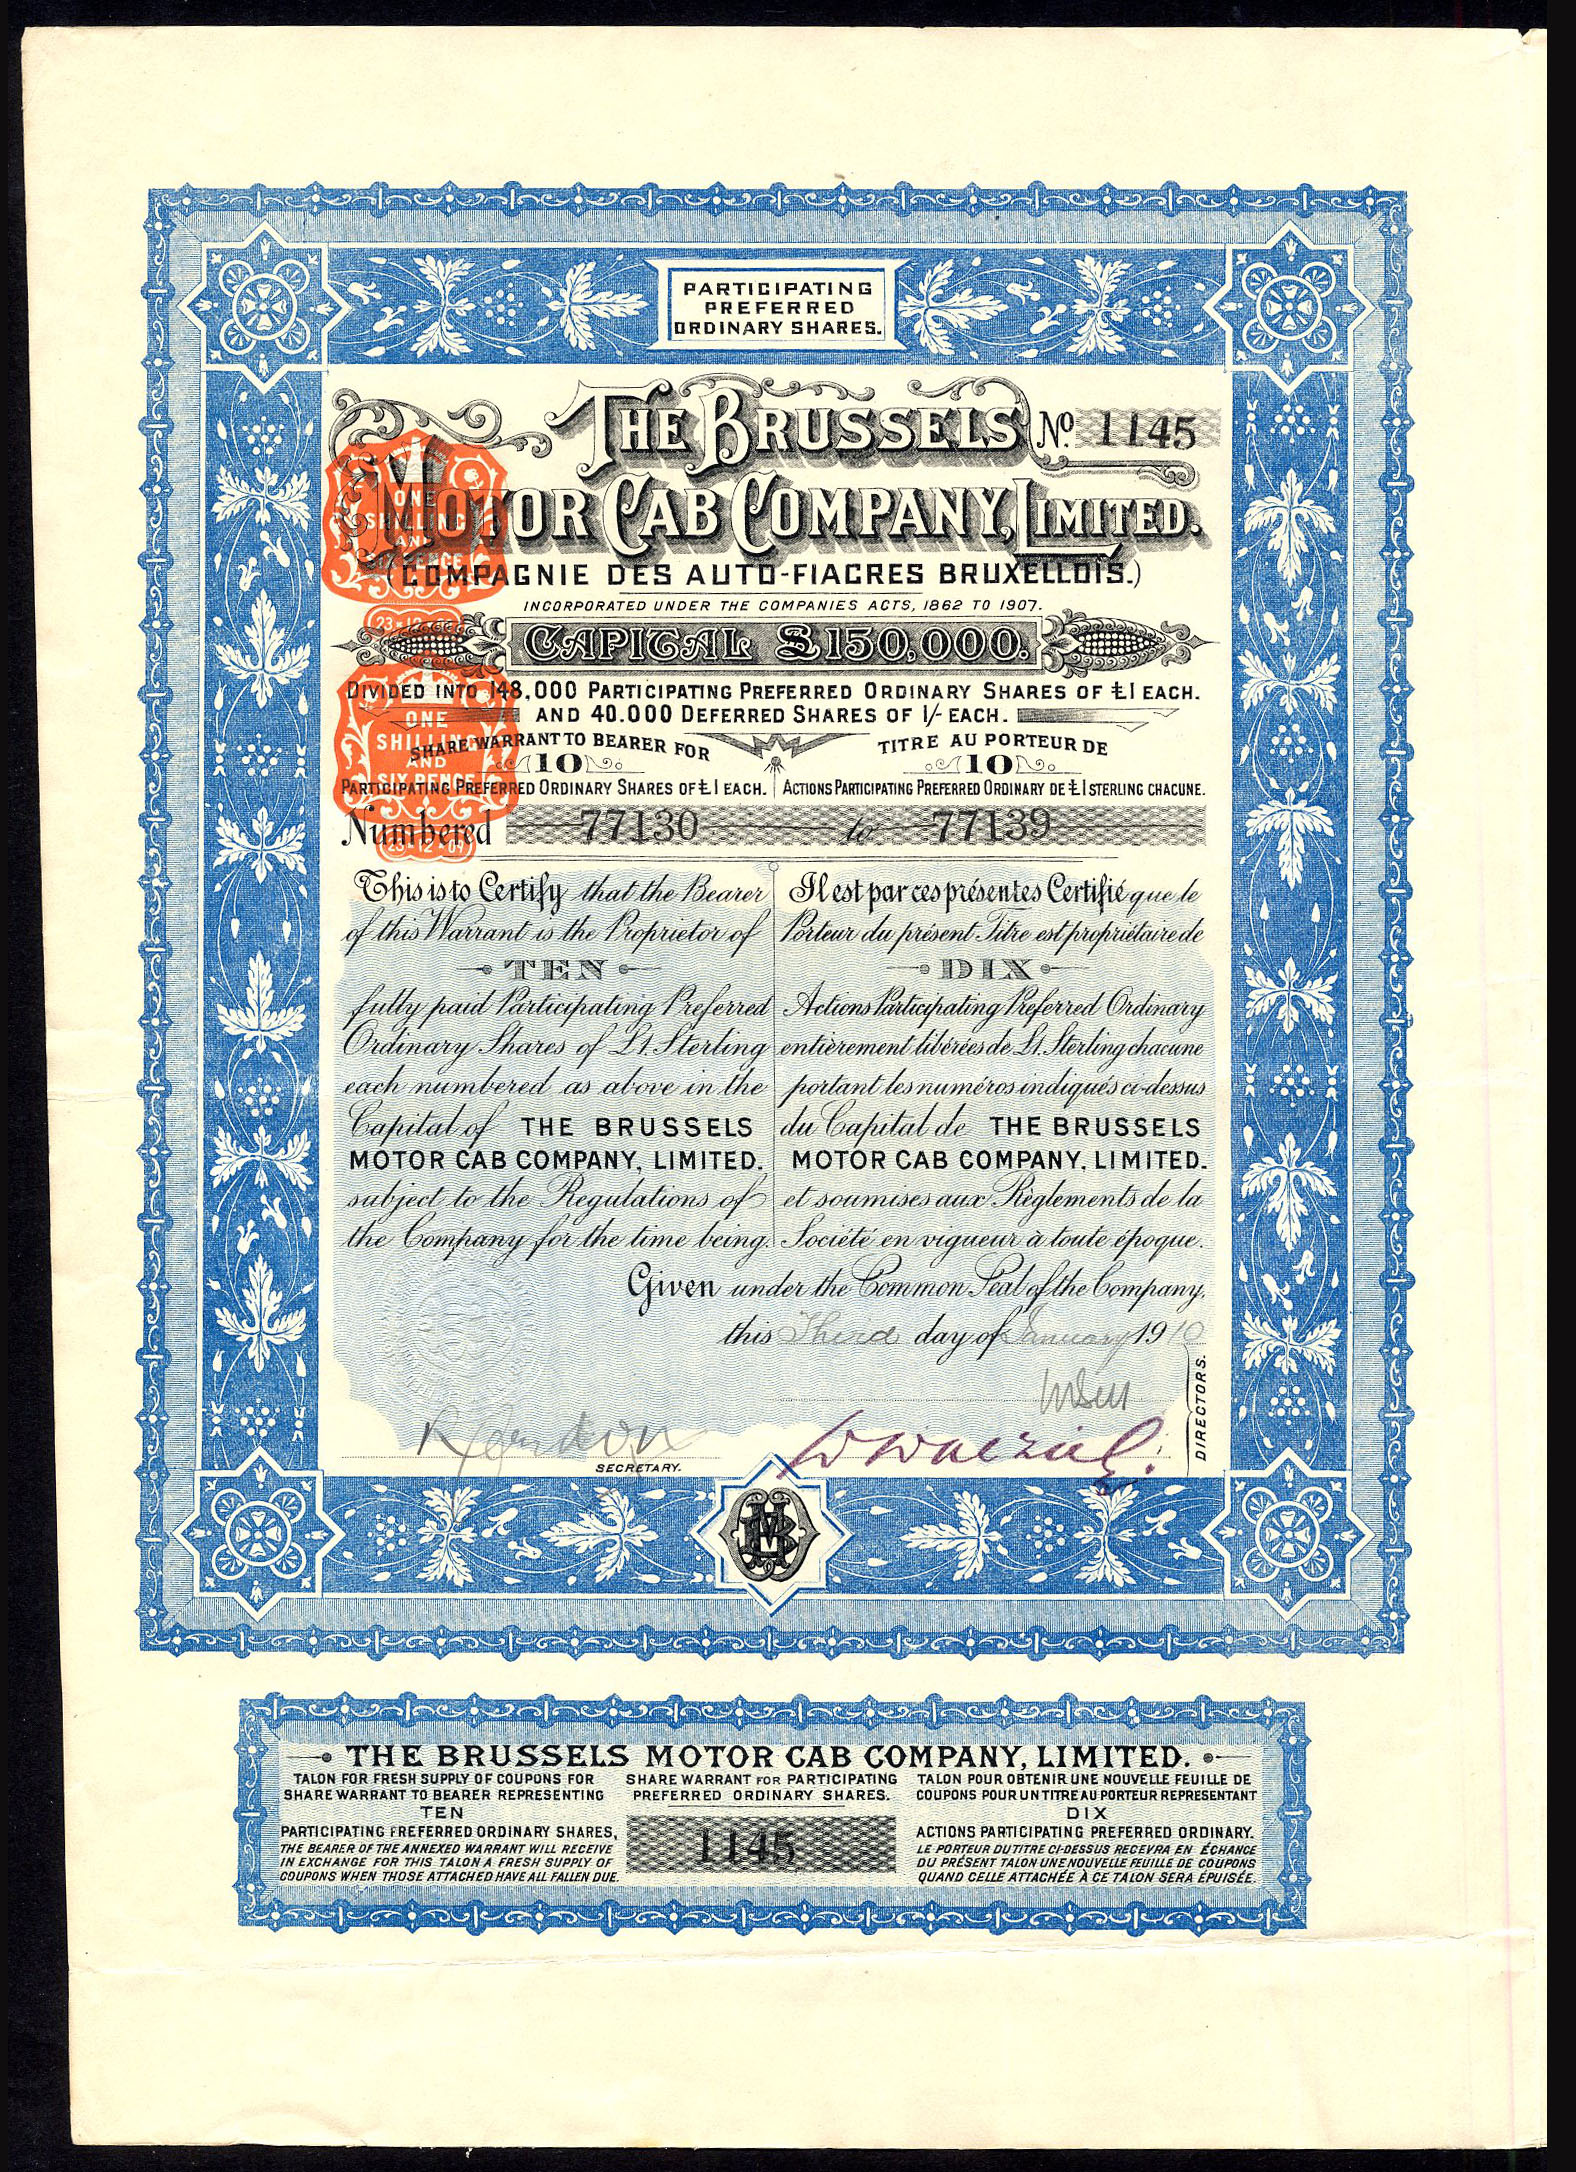 PARTICIPATING
PREFERRED
ORDINARY SHARES.
THE BRUSSELS
No. 1145
MOTOR CAB COMPANY, LIMITED.
(COMPAGNIE DES AUTO-FIACRES BRUXELLOIS.)
INCORPORATED UNDER THE COMPANIES ACTS, 1862 TO 1907.
CAPITAL £150,000.
DIVIDED INTO 148,000 PARTICIPATING PREFERRED ORDINARY SHARES OF £1 EACH.
AND 40.000 DEFERRED SHARES OF 1/- EACH.
ONE
SHILLING
AND
SIX PENCE
ONE
SHILLING
AND
SIX PENCE
23·12·09
SHARE WARRANT TO BEARER FOR
10
PARTICIPATING PREFERRED ORDINARY SHARES OF £1 EACH.
TITRE AU PORTEUR DE
10
ACTIONS PARTICIPATING PREFERRED ORDINARY DE £1 STERLING CHACUNE.
Numbered 77130 to 77139
This is to Certify that the Bearer
of this Warrant is the Proprietor of
TEN
fully paid Participating Preferred
Ordinary Shares of £1. Sterling
each numbered as above in the
Capital of THE BRUSSELS
MOTOR CAB COMPANY, LIMITED.
subject to the Regulations of
the Company for the time being.
Il est par ces présentes Certifié que le
Porteur du présent Titre est propriétaire de
DIX
Actions Participating Preferred Ordinary
entièrement libérées de £1. Sterling chacune
portant les numéros indiqués ci-dessus
du Capital de THE BRUSSELS
MOTOR CAB COMPANY, LIMITED.
et soumises aux Règlements de la
Société en vigueur à toute époque.
Given under the Common Seal of the Company,
this Third day of January 1910
DIRECTORS.
SECRETARY.
THE BRUSSELS MOTOR CAB COMPANY, LIMITED.
TALON FOR FRESH SUPPLY OF COUPONS FOR
SHARE WARRANT TO BEARER REPRESENTING
TEN
PARTICIPATING PREFERRED ORDINARY SHARES,
THE BEARER OF THE ANNEXED WARRANT WILL RECEIVE
IN EXCHANGE FOR THIS TALON A FRESH SUPPLY OF
COUPONS WHEN THOSE ATTACHED HAVE ALL FALLEN DUE.
SHARE WARRANT FOR PARTICIPATING
PREFERRED ORDINARY SHARES.
1145
TALON POUR OBTENIR UNE NOUVELLE FEUILLE DE
COUPONS POUR UN TITRE AU PORTEUR REPRESENTANT
DIX
ACTIONS PARTICIPATING PREFERRED ORDINARY.
LE PORTEUR DU TITRE CI-DESSUS RECEVRA EN ÉCHANGE
DU PRÉSENT TALON UNE NOUVELLE FEUILLE DE COUPONS
QUAND CELLE ATTACHÉE À CE TALON SERA ÉPUISÉE.